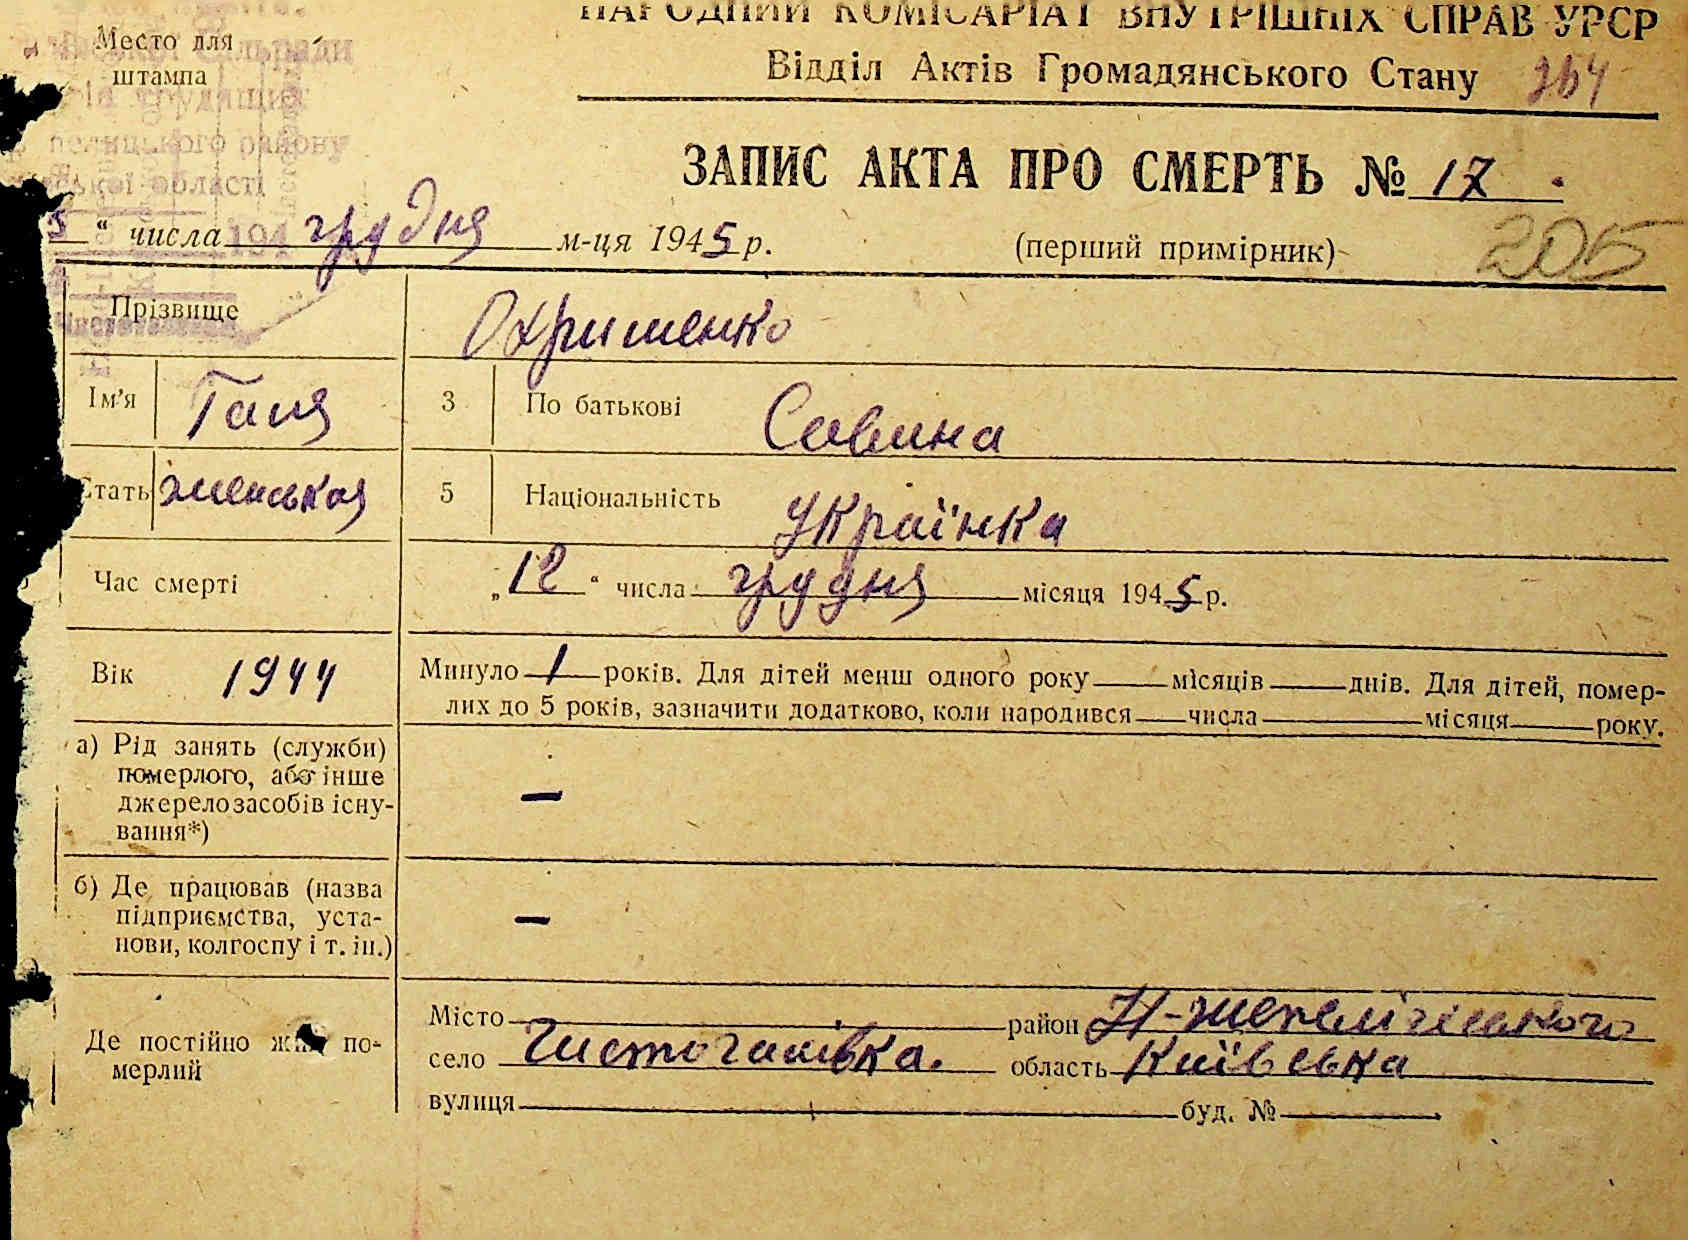 НАРОДНИЙ КОМІСАРІАТ ВНУТРІШНІХ СПРАВ УРСР
Место для
штампа
Відділ Актів Громадянського Стану 264
трудящих
району
області
ЗАПИС АКТА ПРО СМЕРТЬ № 17
“ числа грудня м-ця 1945 р.
(перший примірник)
205
Прізвище Охрименко
Ім'я Галя 3 По батькові Савина
Стать женськая 5 Національність Українка
Час смерті „12“ числа грудня місяця 1945 р.
Вік 1944 Минуло 1 років. Для дітей менш одного року місяців днів. Для дітей, помер-
лих до 5 років, зазначити додатково, коли народився числа місяця року.
а) Рід занять (службі)
померлого, або інше
джерело засобів існу-
вання*) —
б) Де працював (назва
підприємства, уста-
нови, колгоспу і т. ін.) —
Де постійно жив по-
мерлий
Місто район Н-шепелічіського
село Чистогалівка. область Київська
вулиця буд. №